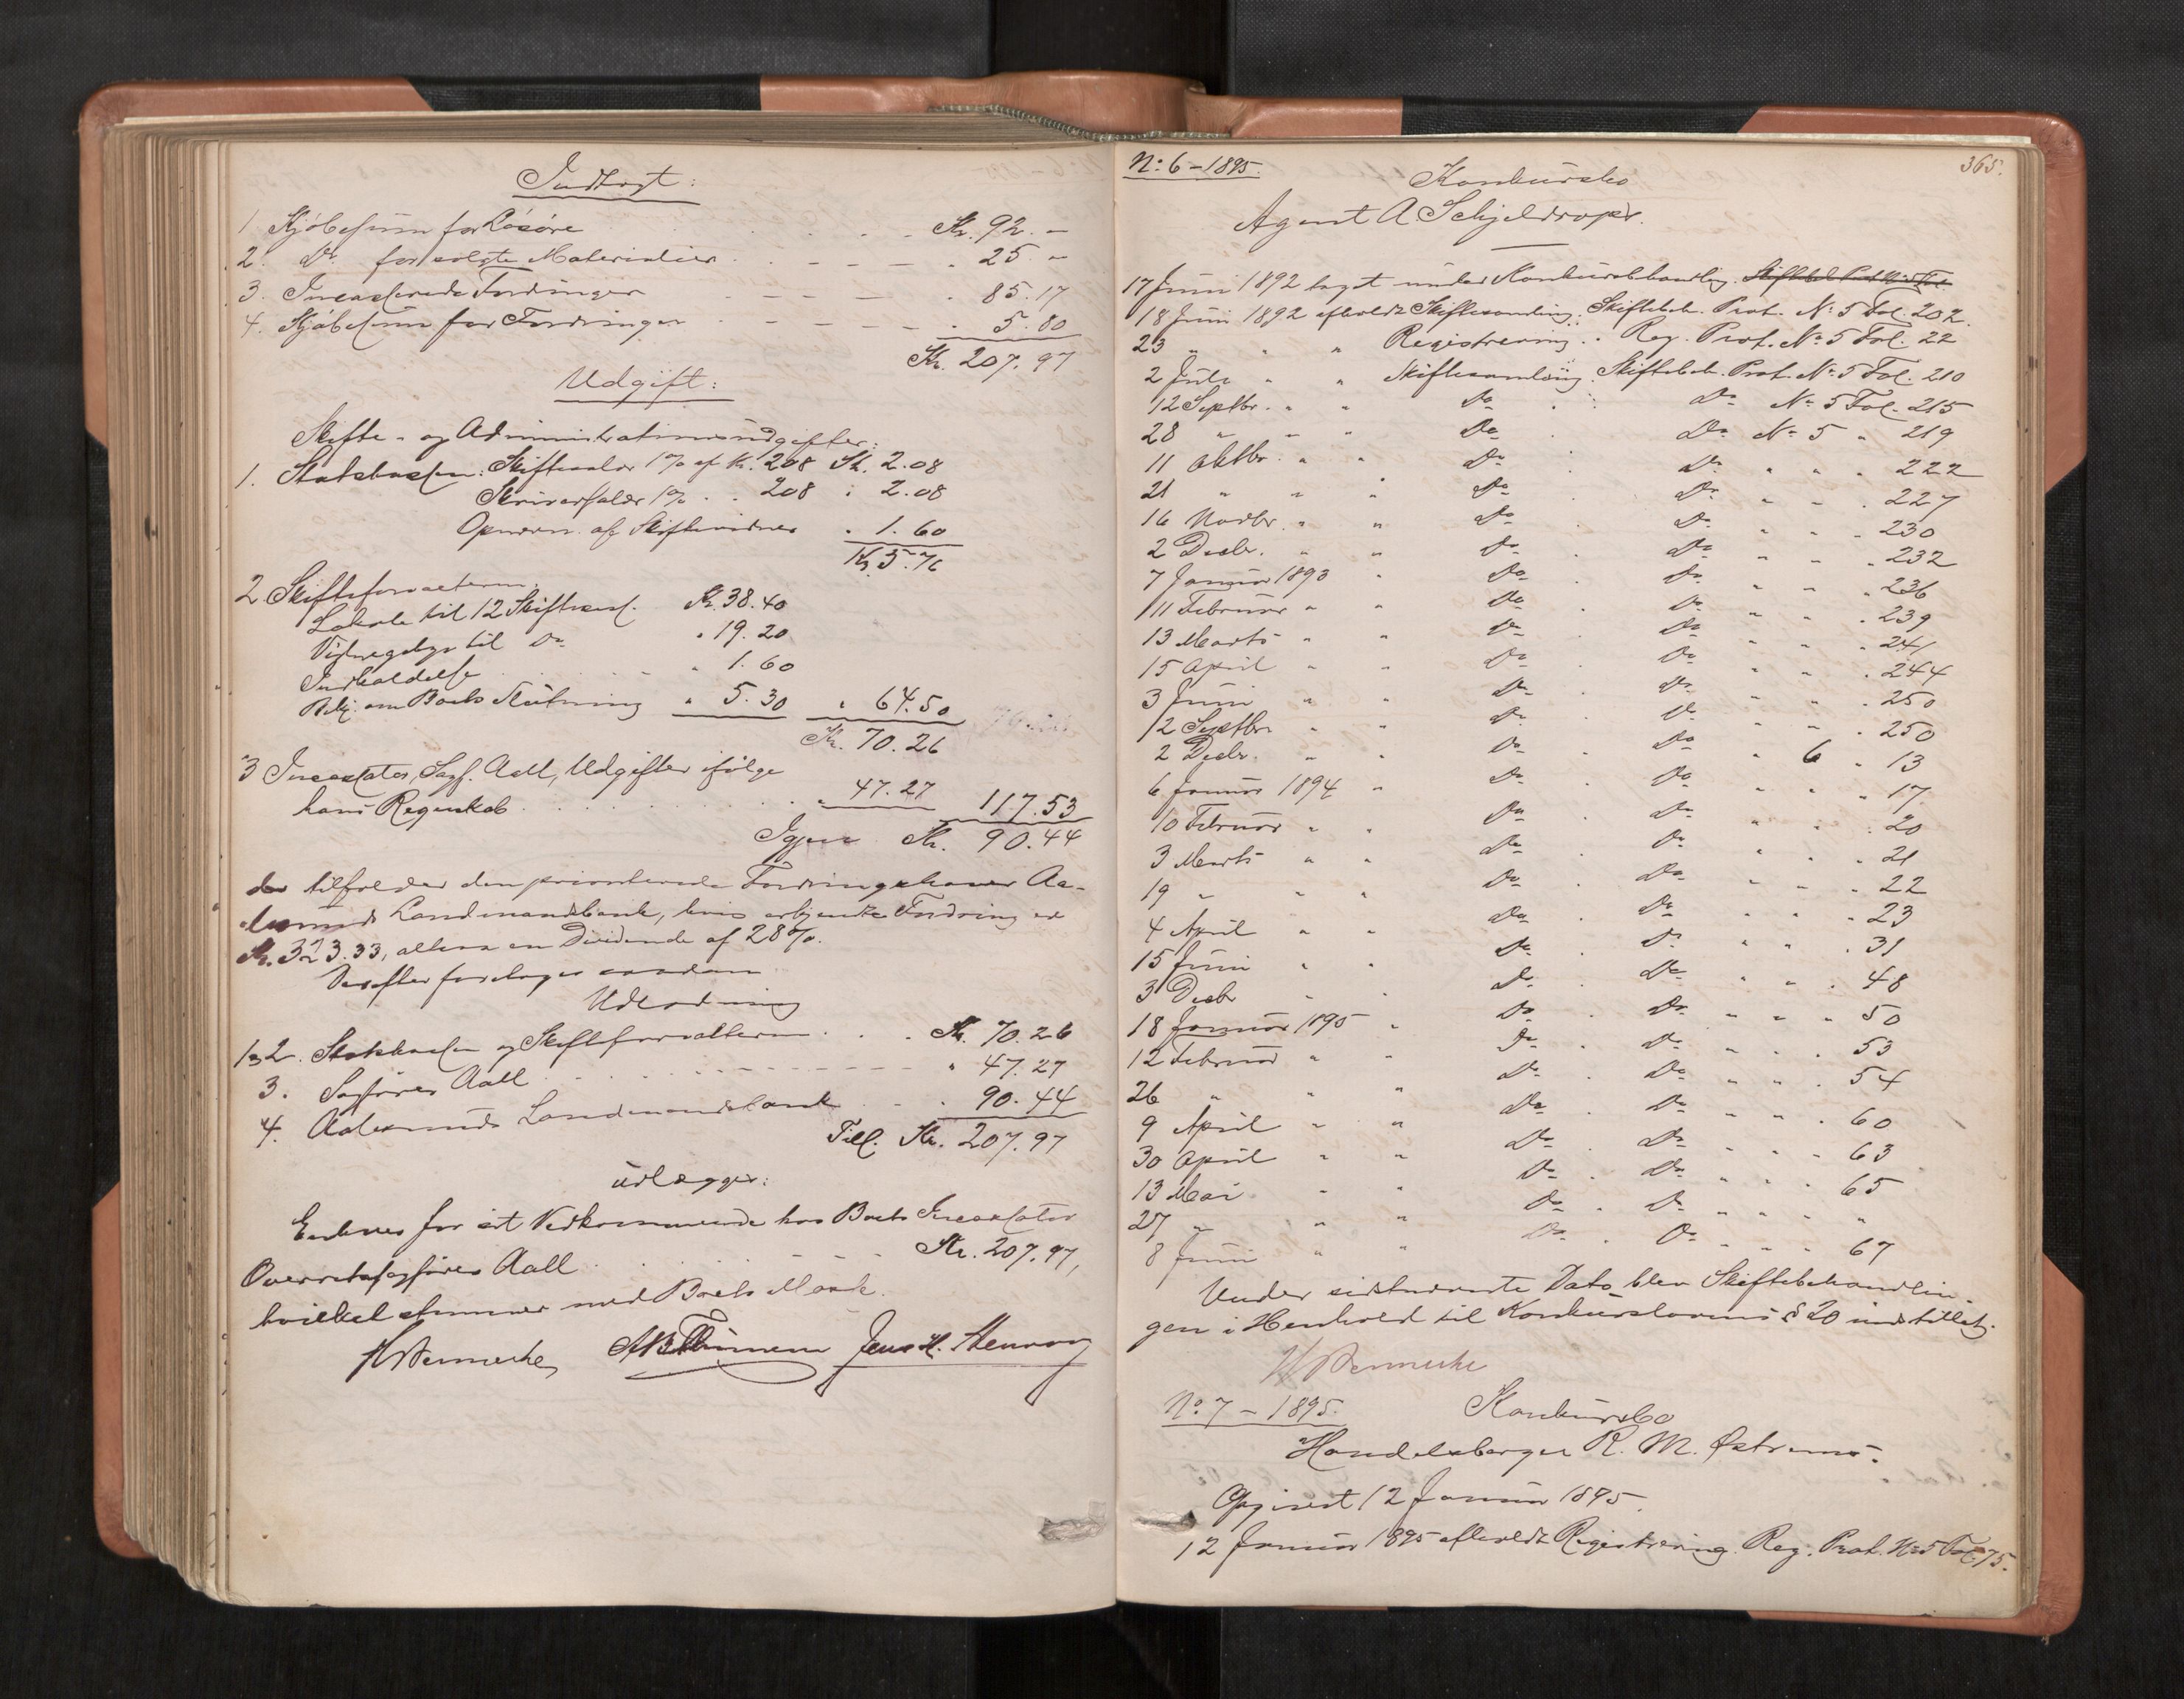 Indtægt:
1 Kjøbesum for Løsøre Kr. 92. -
2. Do. for solgte Materialier 25 -
3. Incasserede Fordringer 85.17
4. Kjøbesum for Fordringer 5.80
Kr. 207.97
Udgift:
Skifte- og Administrationsudgifter:
1. Statskassen: Skiftesalær 1% af Kr. 208 Kr. 2.08
Skriversalær 1% " 208 " 2.08
Opnævn. af Skiftevidner " 1.60
Kr 5.76
2. Skifteforvalteren:
Lokale til 12 Skiftesaml. Kr. 38.40
til Do " 19.20
Indkaldelse " 1.60
Bekj. om Boets Slutning " 5.30 " 64.50
Kr. 70.26
3 Incassator, Sagf. Aall, Udgifter ifølge
hans Regnskab " 47.27 117.53
Igjen Kr. 90.44
der tilfalder den prioriterede Fordringshaver Aa-
lesunds Landmandsbank, hvis erkjendte Fordring er
Kr. 323.33, en Dividende af 28%.
Derefter foretoges saadan
Udlodning
1 og 2. Statskassen og Skifteforvalteren Kr. 70.26
3. Sagfører Aall " 47.27
4. Aalesunds Landmandsbank 90.44
Till. Kr. 207.97
udlægges:
for sit Vedkommende hos Boets Incassator
Overretssagfører Aall Kr. 207.97,
hvilket stemmer med Boets Masse.
No. 6 - 1895. 365.
Konkursbo
Agent A. Schjeldrops.
17 Juni 1892 taget under Konkursbehandling.
18 Juni 1892 afholdt Skiftesamling. Skiftebeh. Prot. No. 5 Fol. 202.
23 " " " Registrering. Reg. Prot. No. 5 Fol. 22
2 Juli " " Skiftesamling. Skiftebeh. Prot. No. 5 Fol. 210
12 Septbr. " " Do Do No. 5 Fol. 215
28 " " " Do Do No. 5 " 219
11 Oktbr. " " Do Do " " " 222
21 " " " Do Do " " " 227
16 Novbr. " " Do Do " " " 230
2 Decbr. " " Do Do " " " 232
7 Januar 1893 " Do Do " " " 236
11 Februar " " Do Do " " " 239
13 Marts " " Do Do " " " 241
15 April " " Do Do " " " 244
3 Juni " " Do Do " " " 250
12 Septbr " " Do Do " " " 250
2 Decbr. " " Do Do " 6 " 13
6 Januar 1894 " Do Do " " " 17
10 Februar " " Do Do " " " 20
3 Marts " " Do Do " " " 21
19 " " " Do Do " " " 22
4 April " " Do Do " " " 23
15 Juni " " Do Do " " " 31
3 Decbr " " Do Do " " " 48
18 Januar 1895 " Do Do " " " 50
12 Februar " " Do Do " " " 53
26 " " " Do Do " " " 54
9 April " " Do Do " " " 60
30 April " " Do Do " " " 63
13 Mai " " Do Do " " " 65
27 " " " Do Do " " " "
8 Juni " " Do Do " " " 67
Under sidstnævnte Dato blev Skiftebehandlin-
gen i Henhold til Konkurslovens § 20 indstillet.
No. 7 - 1895. Konkursbo
Handelsborger R. M.
Opgivet 12 Januar 1895.
12 Januar 1895 afholdt Registrering. Reg. Prot. No 5 Fol. 75.